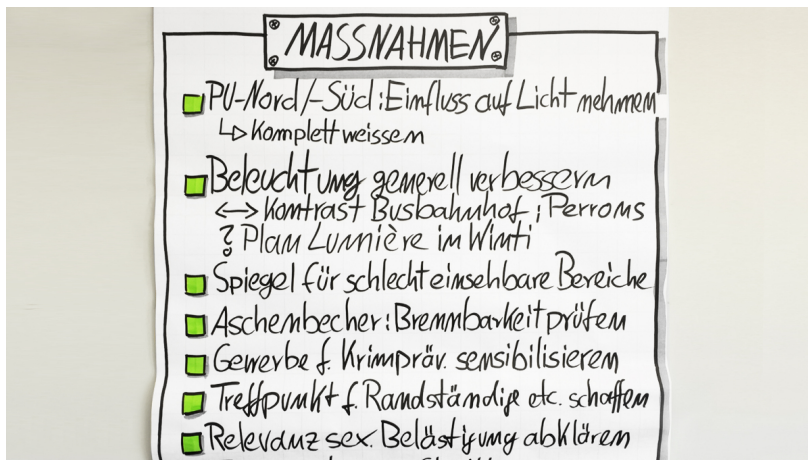 MASSNAHMEN
PU-Nord/-Süd: Einfluss auf Licht nehmen
↳ Komplett weissen
Beleuchtung generell verbessern
↔ Kontrast Busbahnhof; Perrons
? Plan Lumière in Winti
Spiegel für schlecht einsehbare Bereiche
Aschenbecher: Brennbarkeit prüfen
Gewerbe f. Krimpräv. sensibilisieren
Treffpunkt f. Randständige etc. schaffen
Relevanz sex. Belästigung abklären